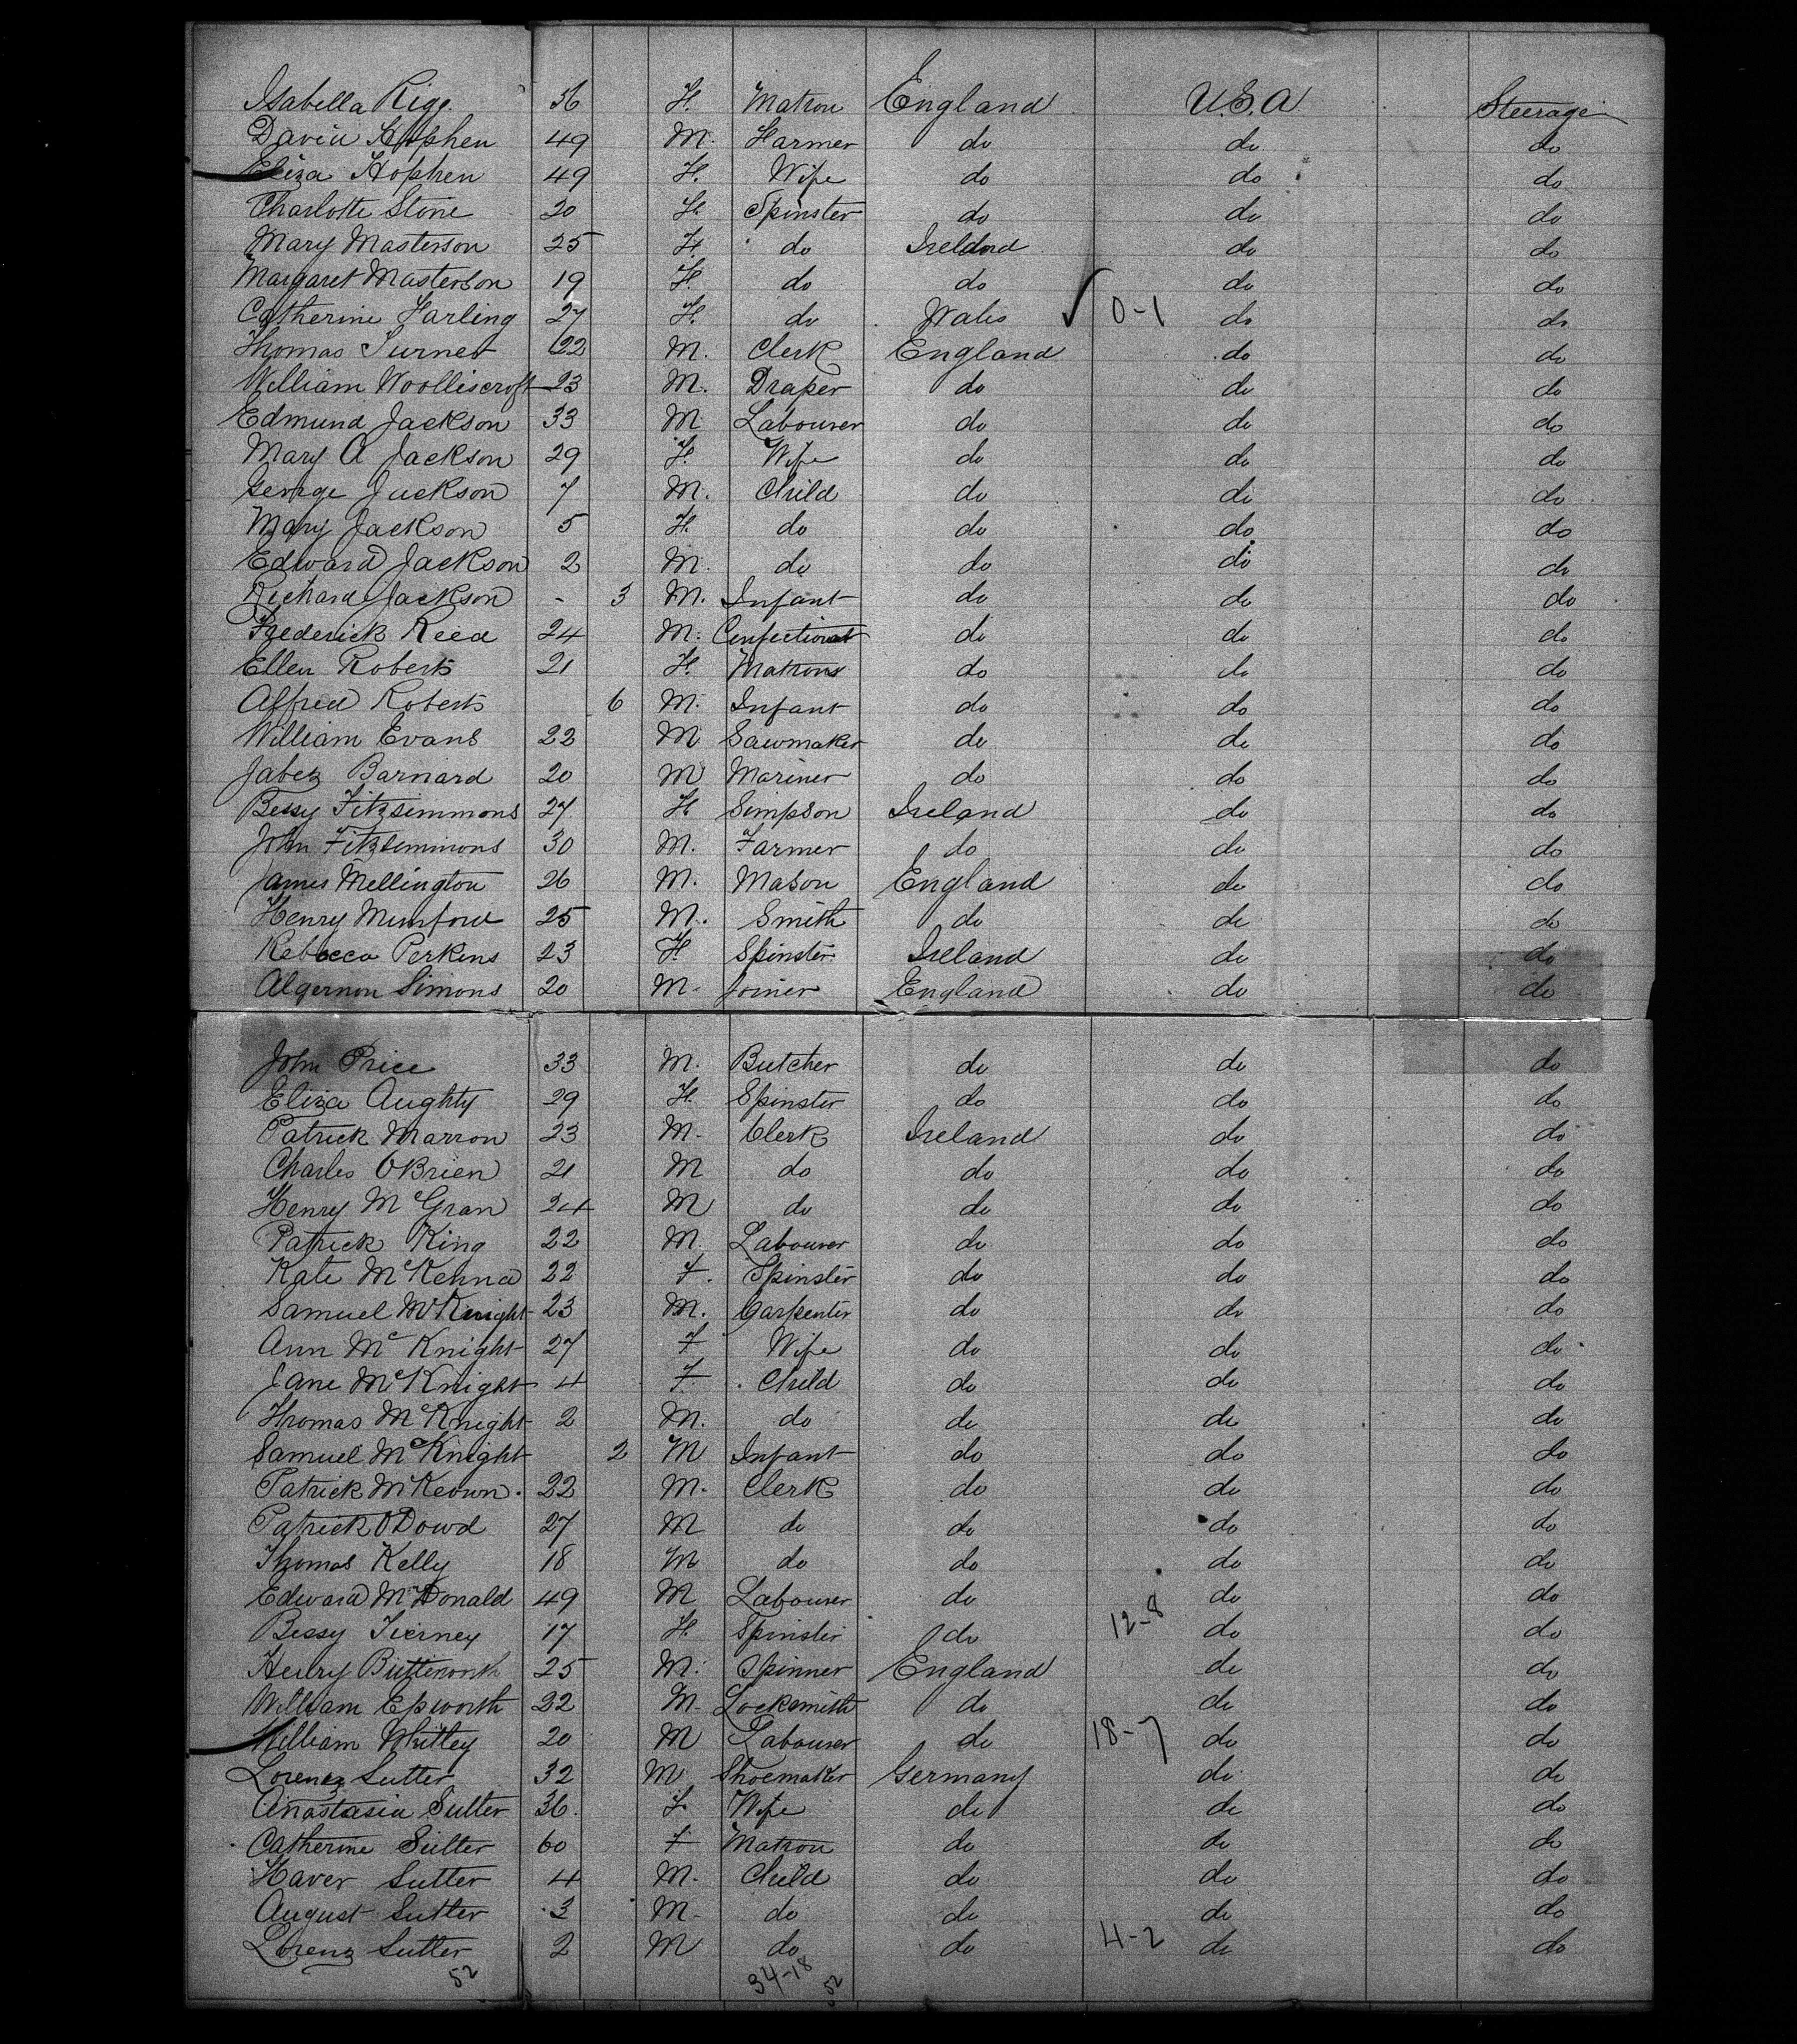 Isabella Rigg 36 F. Matron England U.S.A Steerage
David Hophen 49 M. Farmer do do do
Eliza Hophen 49 F. Wife do do do
Charlotte Stone 20 F. Spinster do do do
Mary Masterson 25 F. do Ireland do do
Margaret Masterson 19 F. do do do do
Catherine Farling 27 F. do Wales ✓ 0-1 do do
Thomas Turner 22 M. Clerk England do do
William Woolliscroft 23 M. Draper do do do
Edmund Jackson 33 M Labourer do do do
Mary A Jackson 29 F. Wife do do do
George Jackson 7 M. Child do do do
Mary Jackson 5 F. do do do do
Edward Jackson 2 M. do do do do
Richard Jackson - 3 M. Infant do do do
Frederick Reed 24 M. do do do
Ellen Roberts 21 F. Matron do do do
Alfred Roberts 6 M. Infant do do do
William Evans 22 M Sawmaker do do do
Jabez Barnard 20 M Mariner do do do
Bessy Fitzsimmons 27 F Simpson Ireland do do
John Fitzsimmons 30 M. Farmer do do do
James Mellington 26 M. Mason England do do
Henry Mumford 25 M. Smith do do do
Rebecca Perkins 23 F. Spinster Ireland do do
Algernon Simons 20 M. Joiner England do do
John Price 33 M. Butcher do do do
Eliza Aughty 29 F. Spinster do do do
Patrick Marron 23 M. Clerk Ireland do do
Charles OBrien 21 M do do do do
Henry McGran 24 M do do do do
Patrick King 22 M Labourer do do do
Kate McKenna 22 F. Spinster do do do
Samuel McKnight 23 M. Carpenter do do do
Ann McKnight 27 F Wife do do do
Jane McKnight 4 F. Child do do do
Thomas McKnight 2 M. do do do do
Samuel McKnight 2 M Infant do do do
Patrick McKeown. 22 M. Clerk do do do
Patrick ODowd 27 M do do do do
Thomas Kelly 18 M do do do do
Edward McDonald 49 M Labourer do do do
Bessy Tierney 17 F. Spinster do 12-8 do do
Henry Butterworth 25 M. Spinner England do do
William Epworth 22 M. Locksmith do do do
William Whitley 20 M Labourer do 18-7 do do
Lorenz Sutter 32 M Shoemaker Germany do do
Anastasia Sutter 36. F. Wife do do do
Catherine Sutter 60 F Matron do do do
Haver Sutter 4 M. Child do do do
August Sutter 3 M. do do do do
Lorenz Sutter 2 M do do 4-2 do do
52 34-18 52